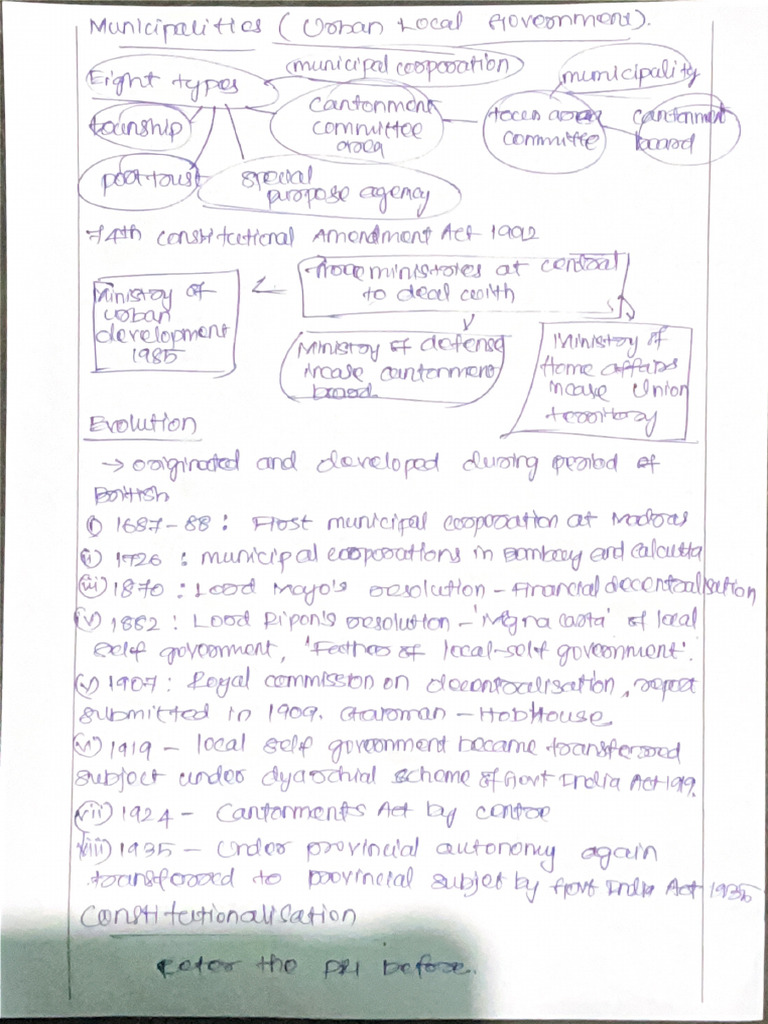 Municipalities (Urban Local Government).
municipal corporation
municipality
Eight types
cantonment
committee
area
township
town area
committee
cantonment
board
port trust
special
purpose agency
74th constitutional Amendment Act 1992
ministries at central
to deal with
Ministry of
urban
development
1985
Ministry of defense
incase cantonment
board.
Ministry of
Home affairs
incase Union
territory
Evolution
→ originated and developed during period of
British
(i) 1687-88 : First municipal corporation at Madras
(ii) 1726 : municipal corporations in Bombay and Calcutta
(iii) 1870 : Lord Mayo's resolution - financial decentralisation
(iv) 1882 : Lord Ripon's resolution - 'Magna carta' of local
self government, 'Father of local-self government'.
(v) 1907 : Royal commission on decentralisation, report
submitted in 1909. Chairman - HobHouse
(vi) 1919 - local self government became transferred
subject under dyarchial scheme of Govt India Act 1919.
(vii) 1924 - Cantonments Act by centre
(viii) 1935 - Under provincial autonomy again
transferred to provincial subjet by Govt India Act 1935
Constitutionalisation
Refer the PRI before.